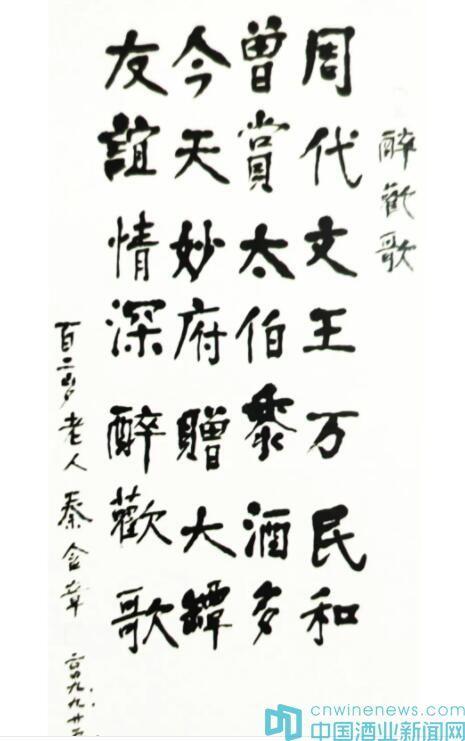 醉歡歌
周代文王万民和
曾賞太伯黍酒多
今天妙府贈大罈
友誼情深醉歡歌
百二岁老人秦含章 二〇〇九.九.廿二.
cnwinenews.com
中国酒业新闻网